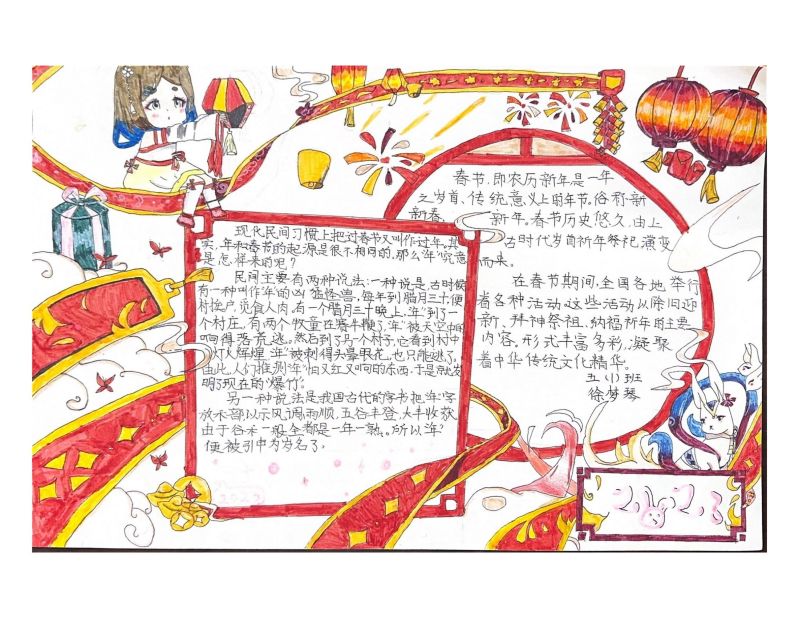 现代民间习惯上把过春节又叫作过年。其
实,年和春节的起源是很不相同的,那么"年"究竟
是怎样来的呢?
民间主要有两种说法:一种说是,古时候
有一种叫作"年"的凶猛怪兽,每年到腊月三十,便
村挨户,觅食人肉,有一个腊月三十晚上,"年"到了一
个村庄,有两个牧童在赛牛鞭了,"年"被天空中的
响得落荒逃。然后到了另一个村子,它看到村中
灯火辉煌,"年"被刺得头晕眼花,也只能逃了。
由此,人们推测"年"怕又红又响的东西,于是
明了现在的"爆竹"。
另一种说法是我国古代的字书把"年"字
放禾部,以示风调雨顺,五谷丰登,大丰收获
由于谷禾一般全都是一年一熟。所以"年"
便被引申为岁名了,
2022
春节,即农历新年是一年
之岁首、传统意义上的年节。俗称新
新春、新年。春节历史悠久,由上
古时代岁首祈年祭祀演变
而来。
在春节期间,全国各地举行
着各种活动,这些活动以除旧迎
新、拜神祭祖、纳福祈年的主要
内容。形式丰富多彩,凝聚
着中华传统文化精华。
五(1)班
徐梦琴
2023